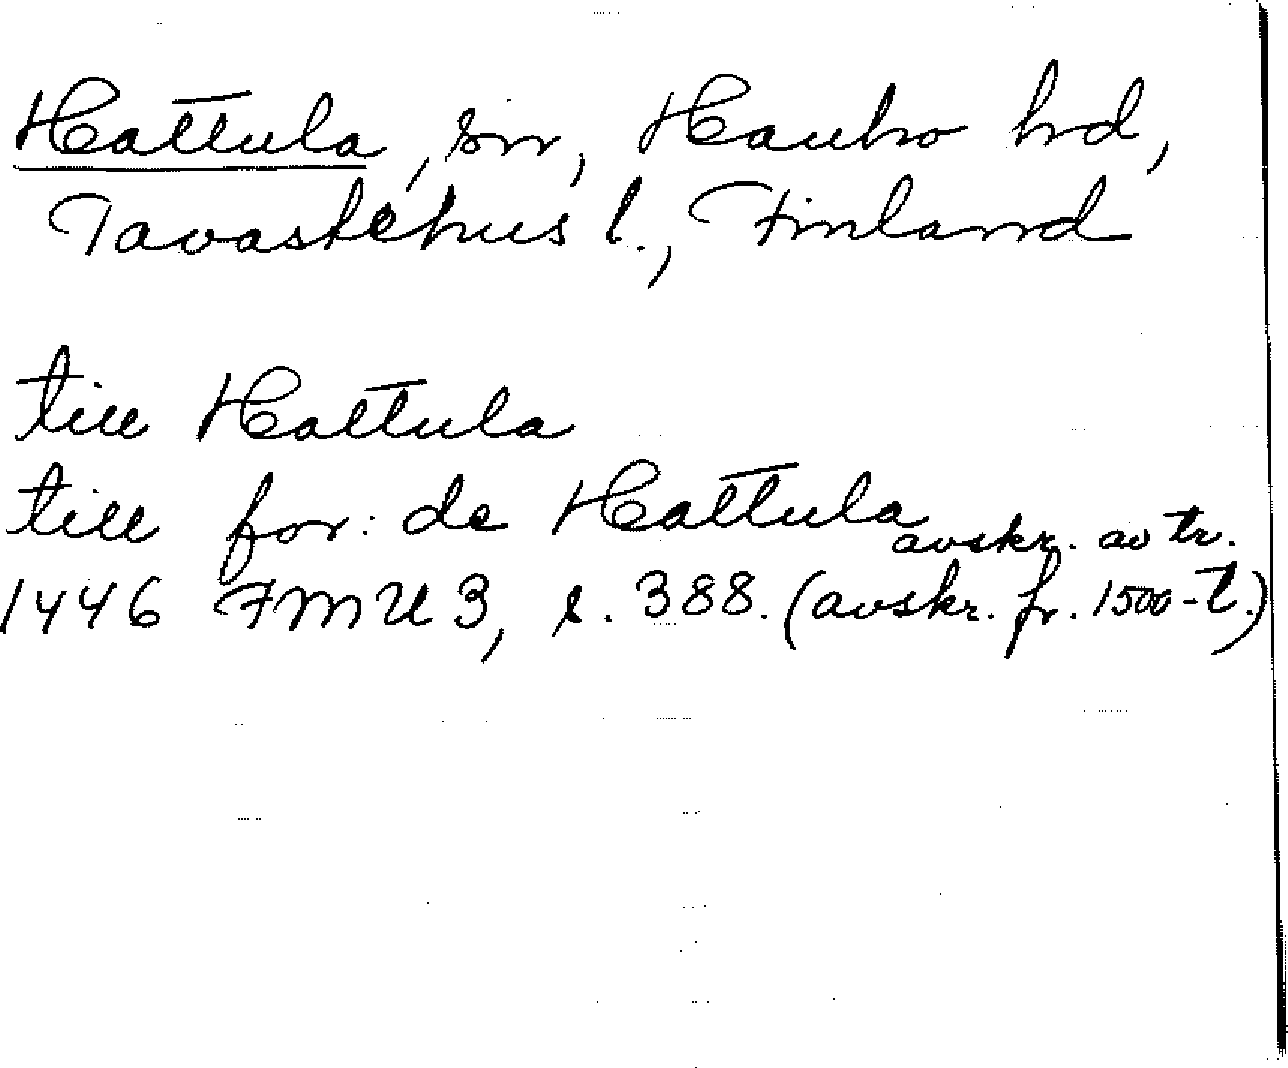 Hattula, sn, Hauho hd,
Tavastehus l., Finland
till Hattula
till for: de Hattula avskr. av tr.
1446 FMU 3, s. 388. (avskr. fr. 1500-t.)